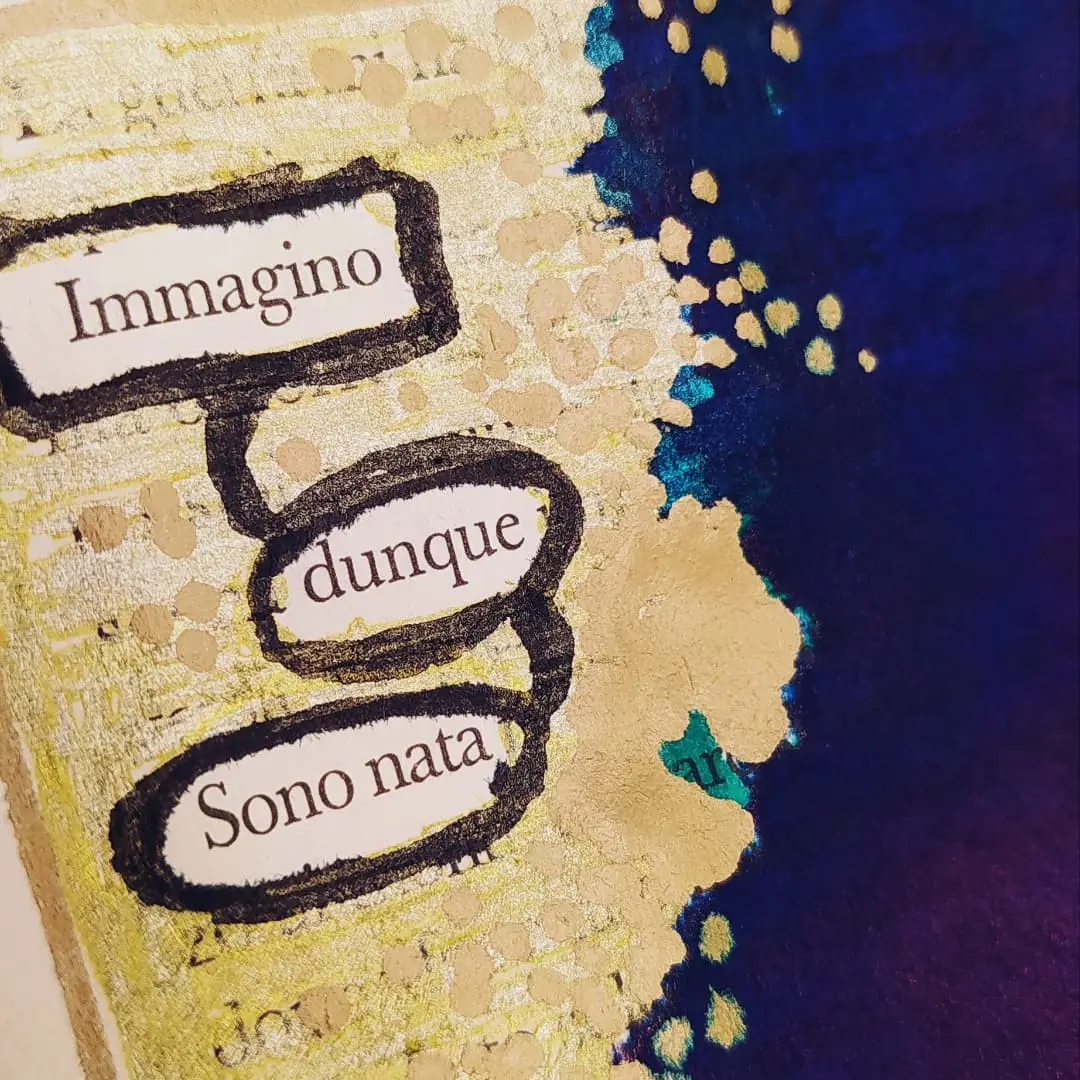 Immagino
dunque
Sono nata